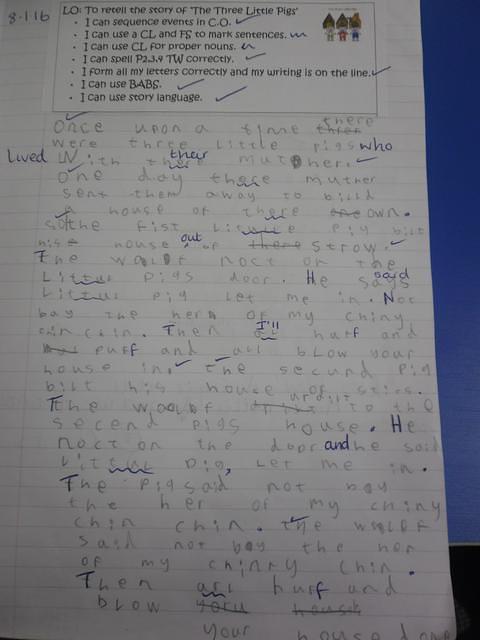 8.11b
LO: To retell the story of 'The Three Little Pigs'
• I can sequence events in C.O.
• I can use a CL and FS to mark sentences.
• I can use CL for proper nouns.
• I can spell P2,3,4 TW correctly.
• I form all my letters correctly and my writing is on the line.
• I can use BABS.
• I can use story language.
there
Once upon a time three
were three little pigs who
Lived With their muther.
One day there muther
sent them away to billd
a house of there own.
So the fist Littule pig bilt
his house out of there strow.
The woolf noct on the
Littus pigs door. He says said
Littus pig let me in. Not
bay the hern of my chiny
chin chin. Then I'll huff and
puff and all blow your
house in. The secund pig
bilt his house of stics.
The woolf to the
secend pigs house. He
noct on the door and he said
Littul pig, let me in.
The pig said not bay
the her of my chiny
chin chin. The woolf
said not bay the her
of my chinny chin.
Then all huff and
blow your house
your house